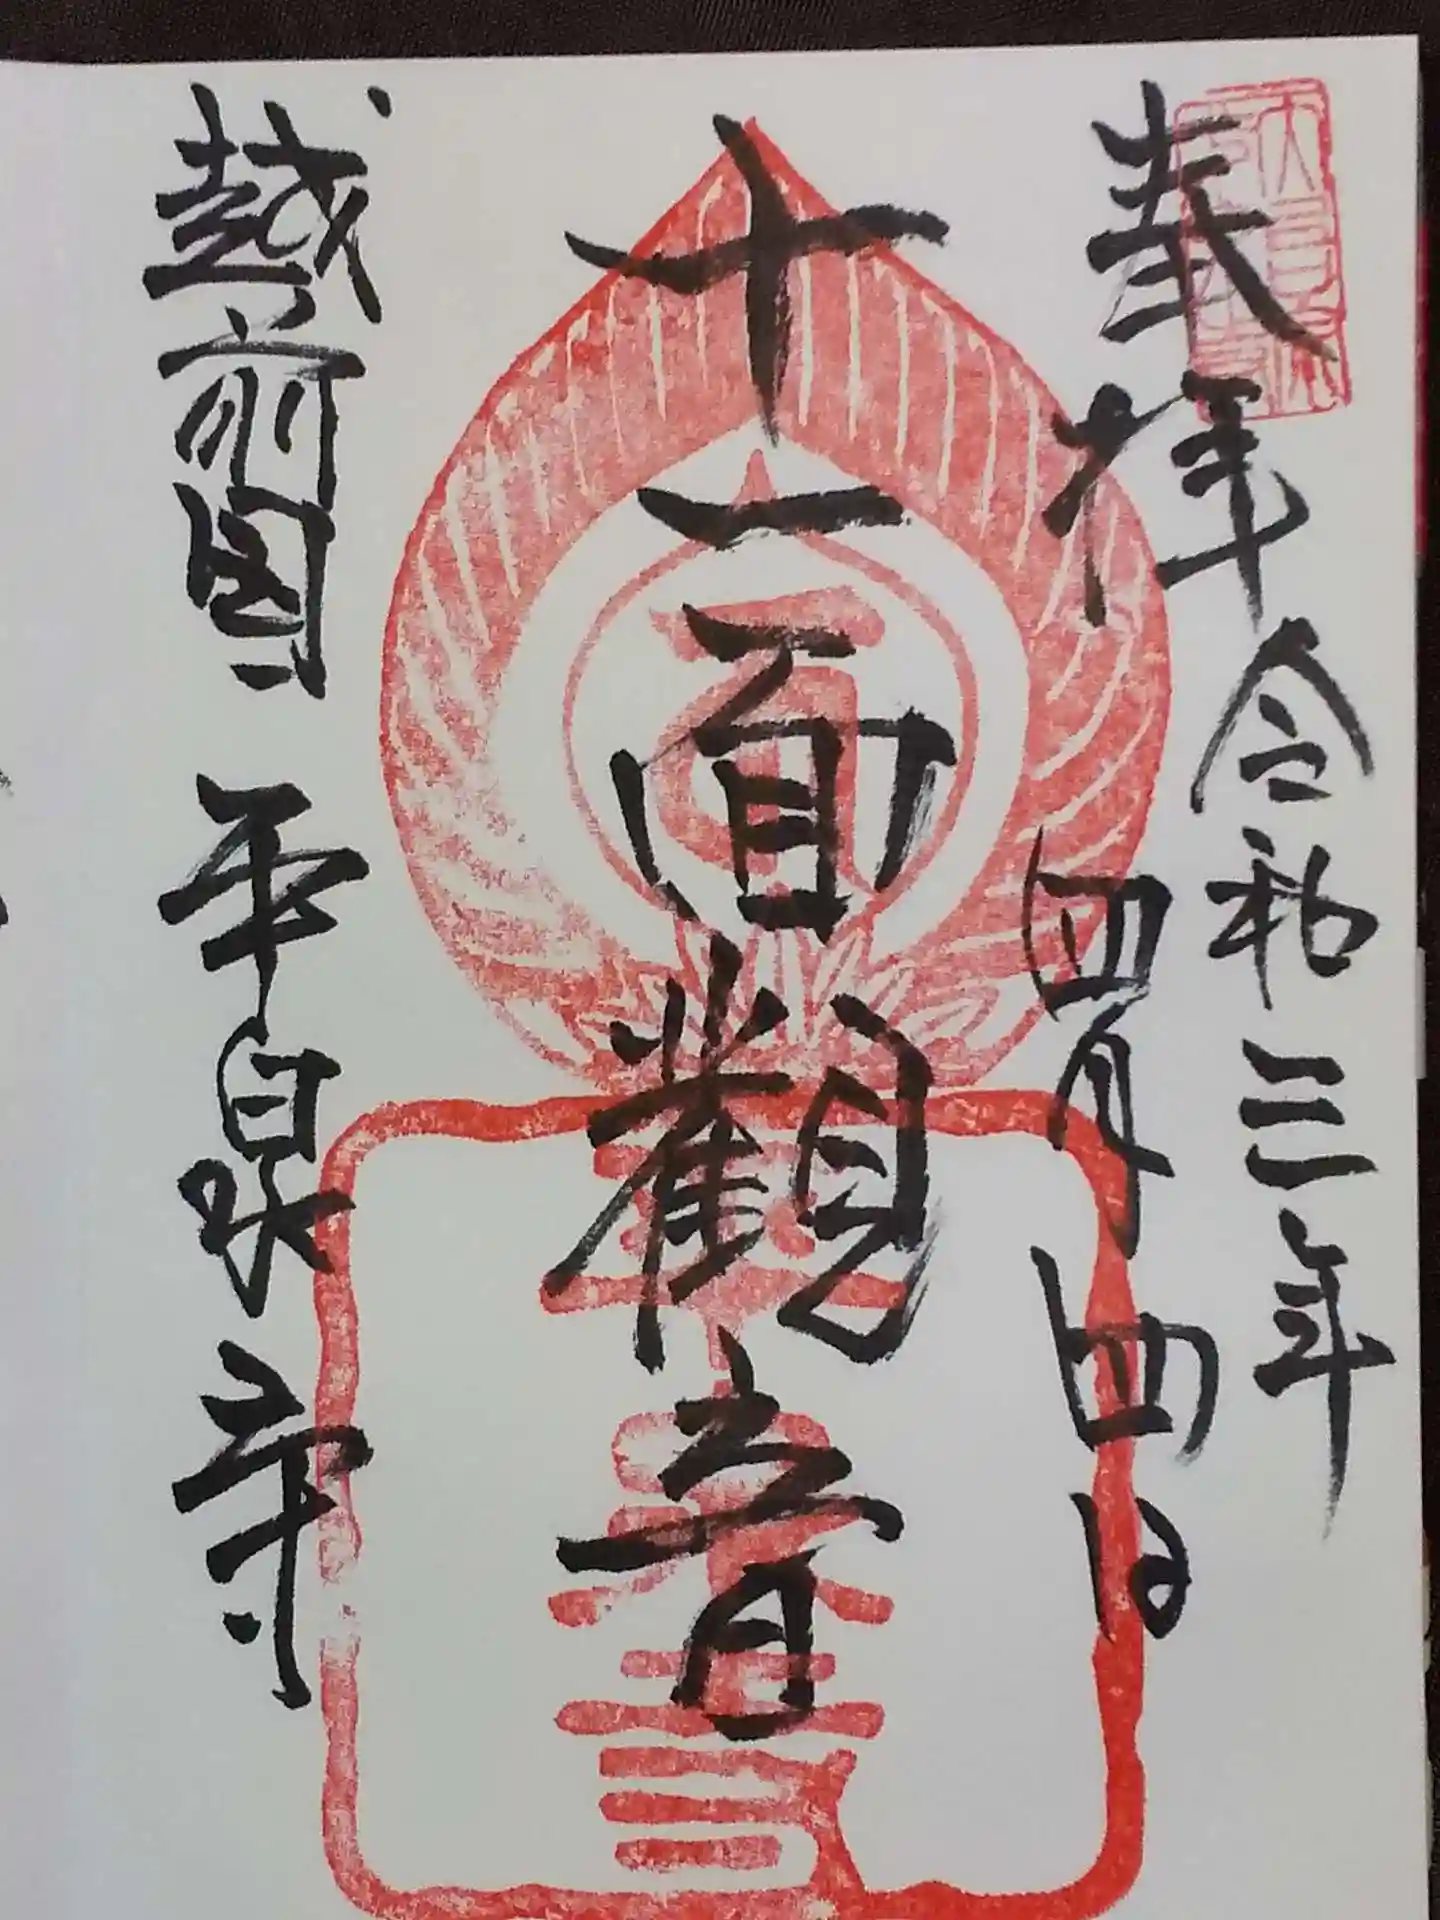 奉拝
令和三年
四月四日
十一面観音
越前国 平泉寺